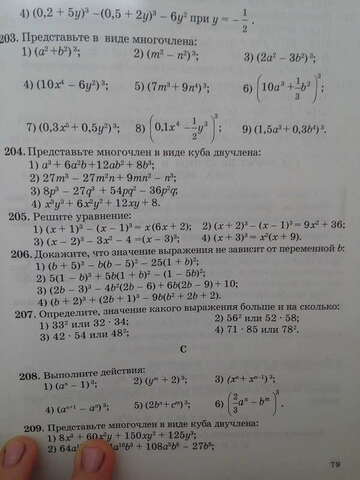 4) (0,2 + 5y)³ −(0,5 + 2y)³ − 6y² при y = − 1/2 .
203. Представьте в виде многочлена:
1) (a² +b²)²; 2) (m² − n²)³; 3) (2a² − 3b²)³;
4) (10x⁴ − 6y²)³; 5) (7m³ + 9n⁴)³; 6) (10a³ + 1/3 b²)³;
7) (0,3x⁵ + 0,5y²)³; 8) (0,1x⁴ − 1/2 y³)³; 9) (1,5a³ + 0,3b⁴)³.
204. Представьте многочлен в виде куба двучлена:
1) a³ + 6a²b + 12ab² + 8b³;
2) 27m³ − 27m²n + 9mn² − n³;
3) 8p³ − 27q³ + 54pq² − 36p²q;
4) x³y³ + 6x²y² + 12xy + 8.
205. Решите уравнение:
1) (x + 1)³ − (x − 1)³ = x(6x + 2); 2) (x + 2)³ − (x − 1)³ = 9x² + 36;
3) (x − 2)³ − 3x² − 4 =(x − 3)³; 4) (x + 3)³ = x²(x + 9).
206. Докажите, что значение выражения не зависит от переменной b:
1) (b + 5)³ − b(b − 5)² − 25(1 + b)²;
2) 5(1 − b)³ + 5b(1 + b)² − (1 − 5b)²;
3) (2b − 3)³ − 4b²(2b − 6) + 6b(2b − 9) + 10;
4) (b + 2)³ + (2b + 1)³ − 9b(b² + 2b + 2).
207. Определите, значение какого выражения больше и на сколько:
1) 33² или 32 · 34; 2) 56² или 52 · 58;
3) 42 · 54 или 48²; 4) 71 · 85 или 78².
С
208. Выполните действия:
1) (aⁿ − 1)³; 2) (yᵐ + 2)³; 3) (xⁿ + xⁿ⁻¹)³;
4) (aⁿ⁺¹ − aⁿ)³; 5) (2bⁿ + cᵐ)³; 6) (2/3 aⁿ − bᵐ)³.
209. Представьте многочлен в виде куба двучлена:
1) 8x³ + 60x²y + 150xy² + 125y³;
2) 64a + 108a b − 27b ;
79